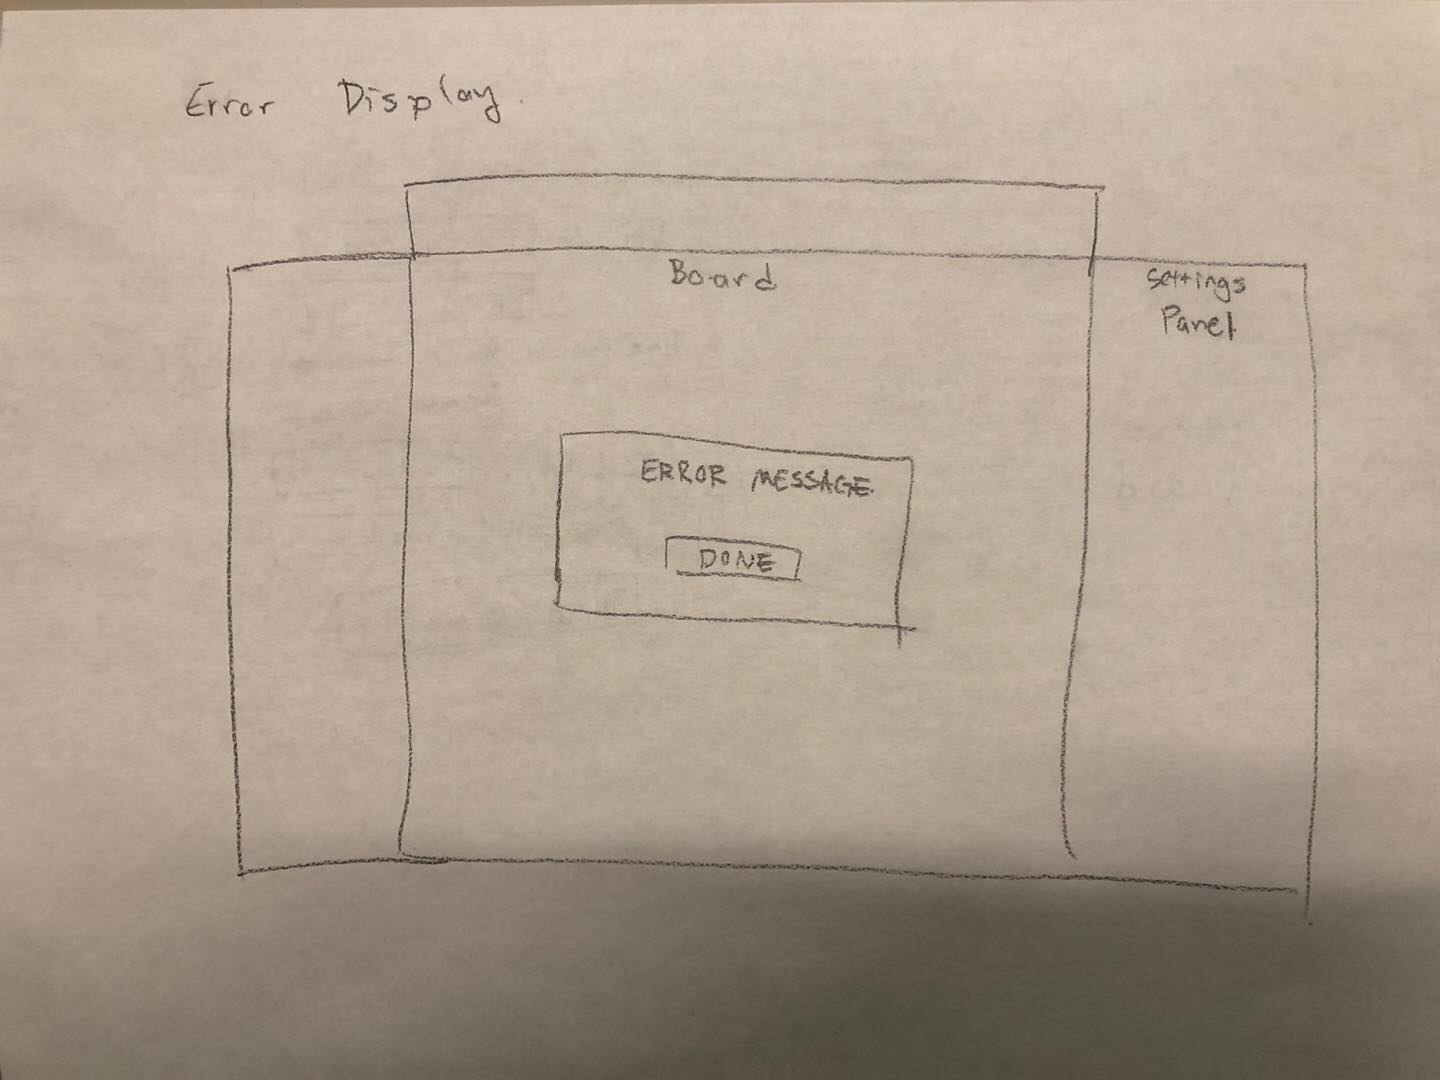 Error Display.
Board
Settings
Panel
ERROR MESSAGE
DONE